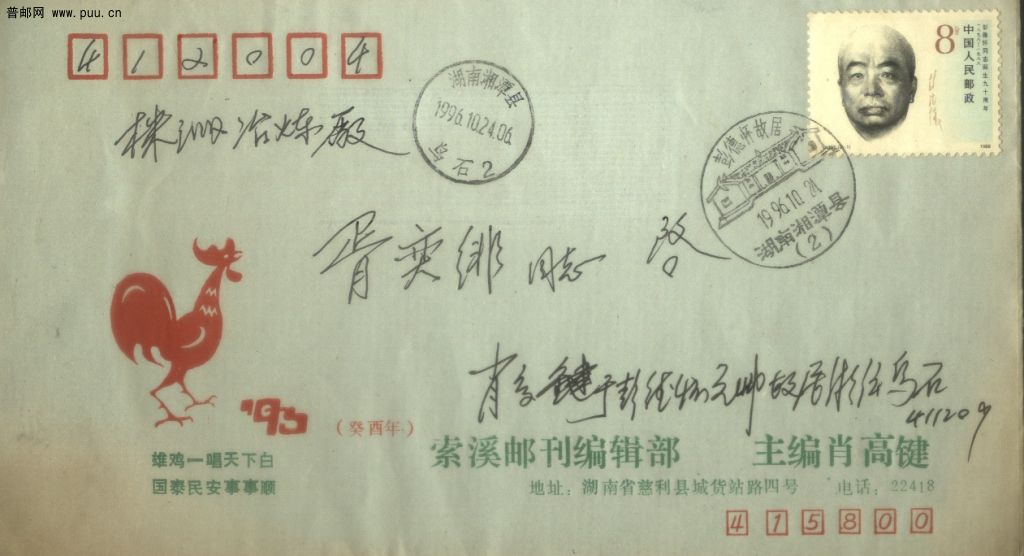 普邮网 www.puu.cn
412004
株洲冶炼厰
湖南湘潭县
1996.10.24.06
乌石2
彭德怀故居
1996.10.24
湖南湘潭县
(2)
8分
中国人民邮政
彭德怀同志诞生九十周年
一八九八——一九八八
1988
胥奕绯 同志 启
肖高键于彭德怀元帅故居湘潭乌石
411209
'93
(癸酉年)
雄鸡一唱天下白
国泰民安事事顺
索溪邮刊编辑部 主编肖高键
地址：湖南省慈利县城货站路四号 电话：22418
415800